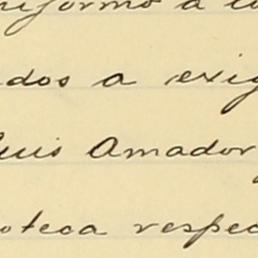 niformo a lo
dos a exig
Luis Amador
oteca respec